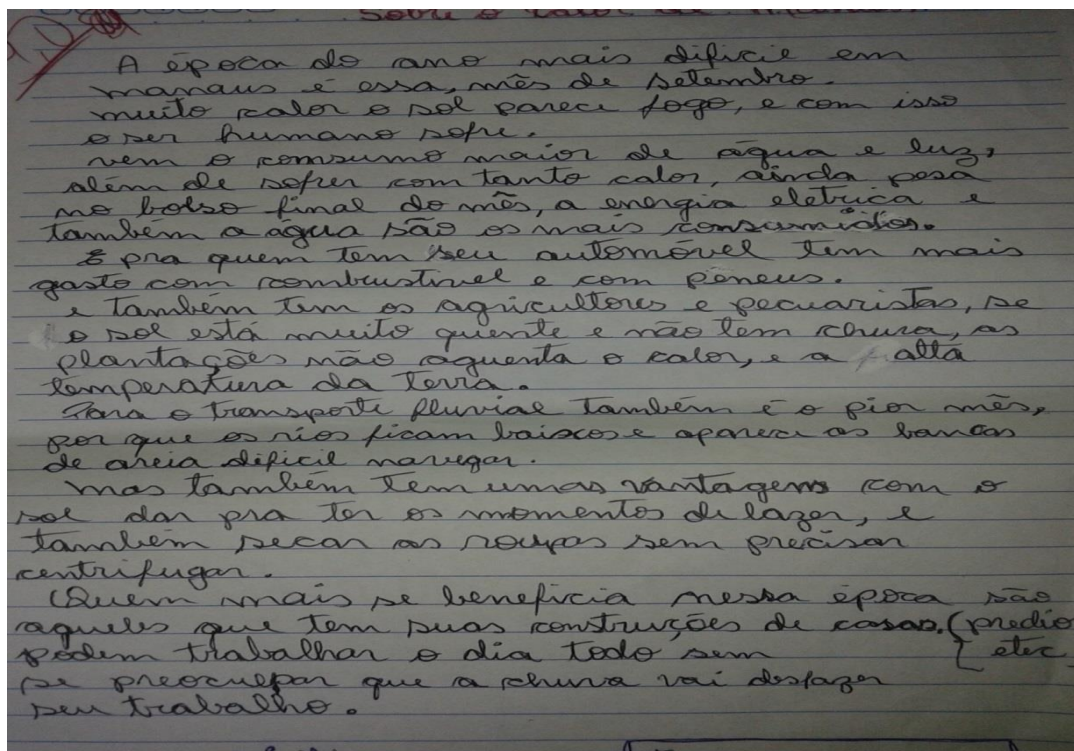 Sobre o calor de
A época do ano mais dificie em
manaus é essa, mês de setembro.
muito calor o sol pareci fogo, e com isso
o ser humano sofre.
vem o consumo maior de água e luz,
além de sofrer com tanto calor, ainda pesa
no bolso final do mês, a energia eletrica e
também a água são os mais consumidos.
E pra quem tem seu automóvel tem mais
gasto com combustivel e com peneus.
e também tem os agricultores e pecuaristas, se
o sol está muito quente e não tem chuva, as
plantações não aguenta o calor, e a alta
temperatura da Terra.
Para o transporte fluvial também é o pior mês,
por que os rios ficam baixos e apareci as bancas
de areia dificil navegar.
mas também tem umas vantagens com o
sol dar pra ter os momentos de lazer, e
também secar as roupas sem precisar
centrifugar.
Quem mais se beneficia nessa época são
aqueles que tem suas construções de casas. (predio
podem trabalhar o dia todo sem etec
se preoculpar que a chuva vai desfazer
seu trabalho.